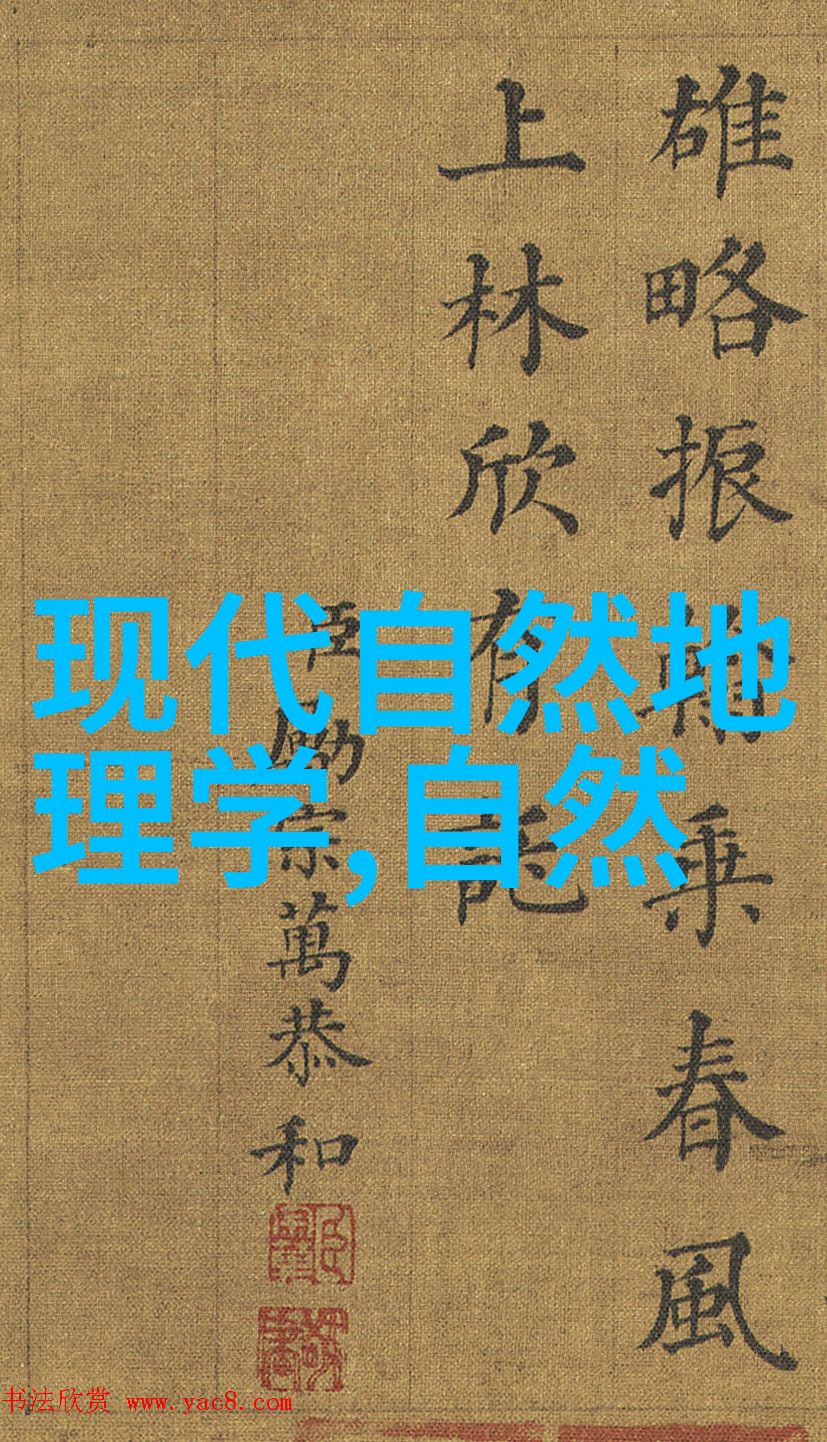 雄略振乘春風
上林欣有託
臣勵宗萬恭和
现代自然地
理学,自然
书法欣赏 www.yac8.com